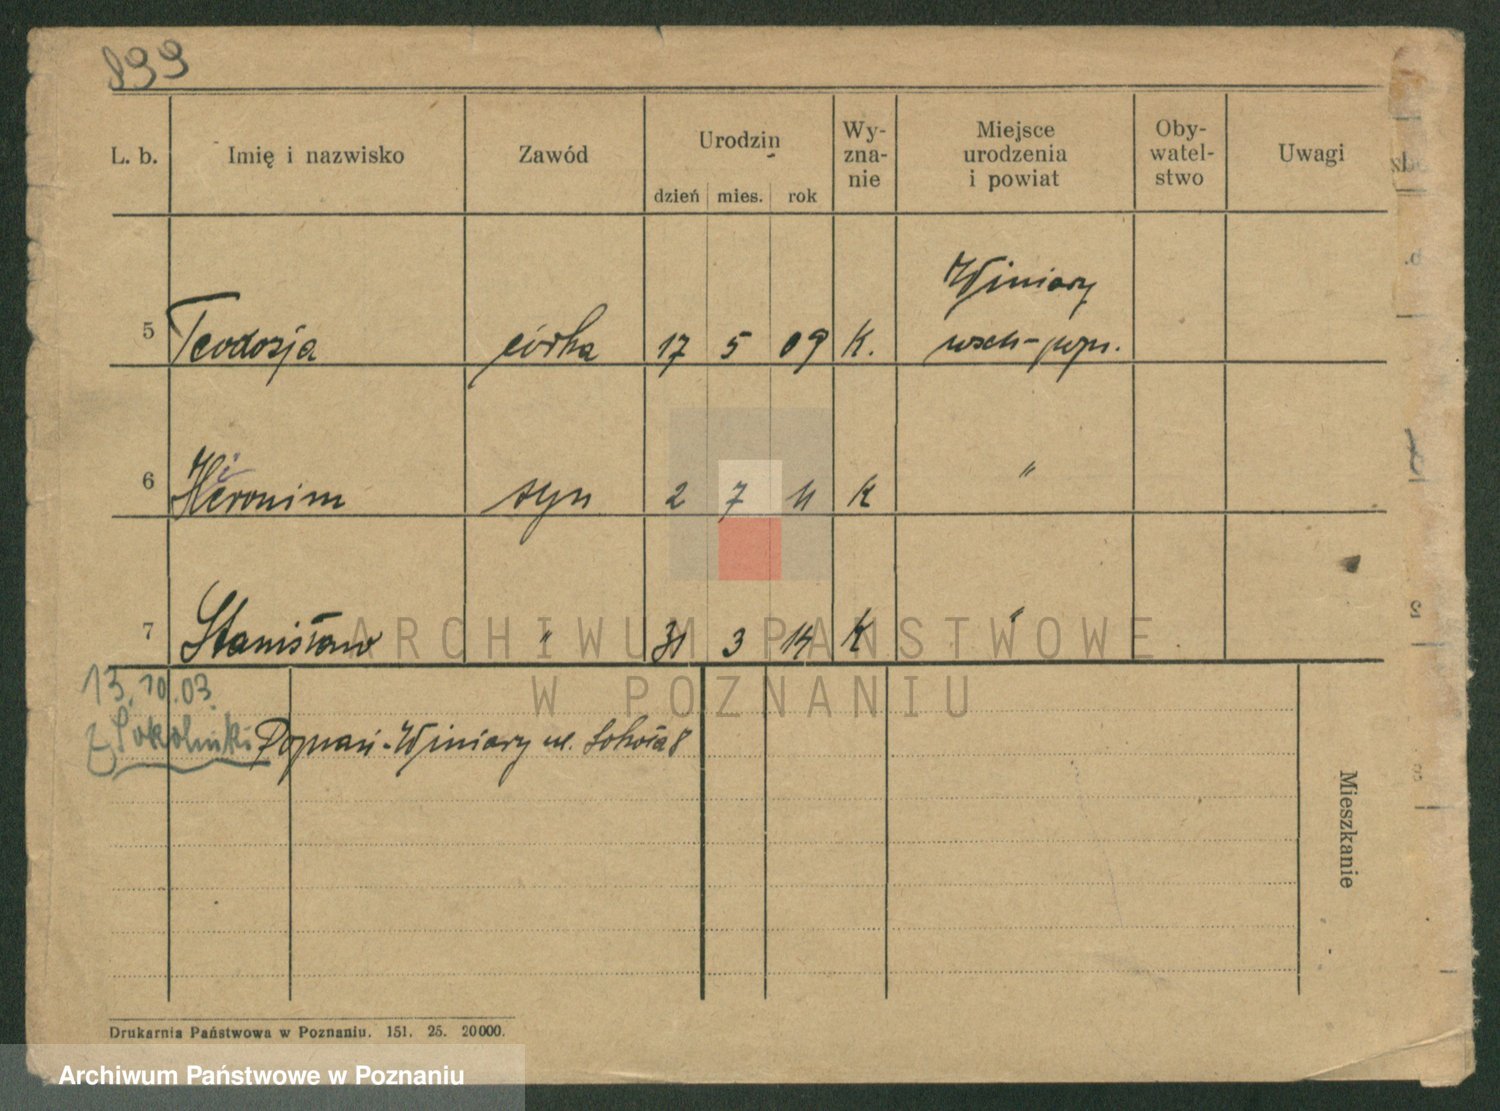 899
L. b. Imię i nazwisko Zawód Urodzin Wy-zna-nie Miejsce urodzenia i powiat Oby-watel-stwo Uwagi
dzień mies. rok
Winiary
5 Teodozja córka 17 5 09 K. wsch-pozn.
6 Hieronim syn 2 7 11 K "
7 Stanisław " 31 3 14 K "
13.10.03.
z Sokolniki Poznań-Winiary ul. Sokoła 8
Mieszkanie
Drukarnia Państwowa w Poznaniu. 151. 25. 20000.
ARCHIWUM PAŃSTWOWE
W POZNANIU
Archiwum Państwowe w Poznaniu